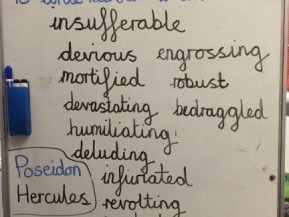 insufferable
devious engrossing
mortified robust
devastating bedraggled
humiliating
deluding
Poseidon infuriated
Hercules revolting